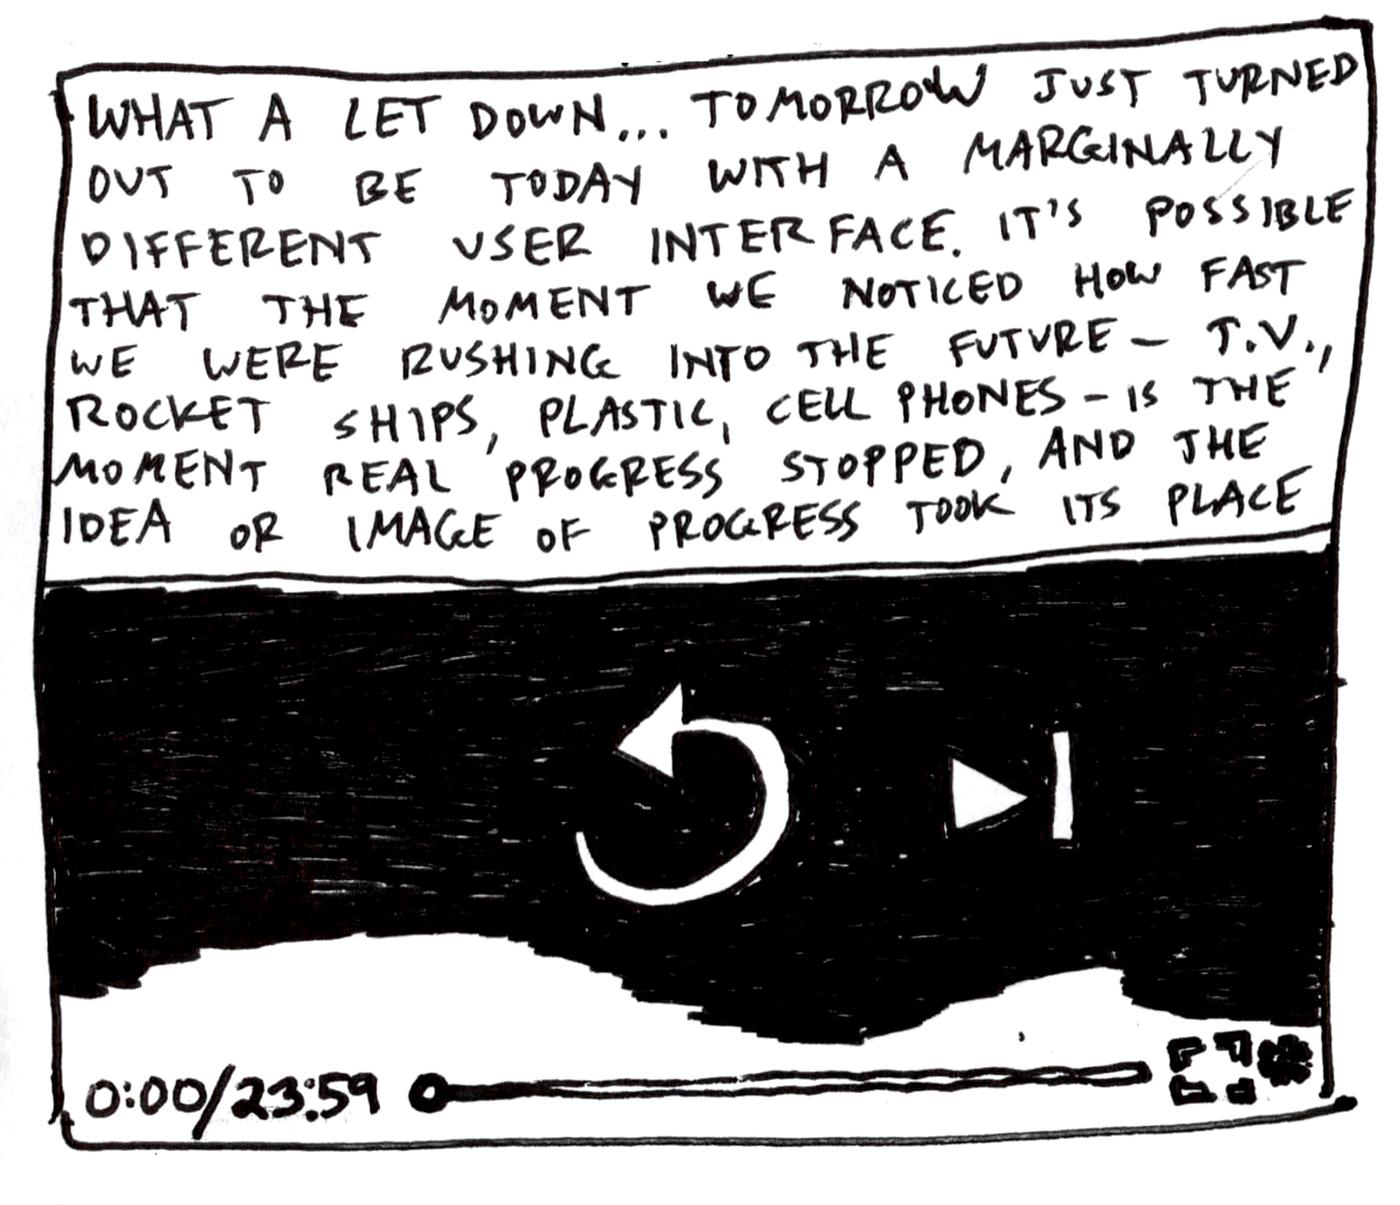 WHAT A LET DOWN... TOMORROW JUST TURNED
OUT TO BE TODAY WITH A MARGINALLY
DIFFERENT USER INTERFACE. IT'S POSSIBLE
THAT THE MOMENT WE NOTICED HOW FAST
WE WERE RUSHING INTO THE FUTURE — T.V.,
ROCKET SHIPS, PLASTIC, CELL PHONES - IS THE
MOMENT REAL PROGRESS STOPPED, AND THE
IDEA OR IMAGE OF PROGRESS TOOK ITS PLACE
0:00/23:59